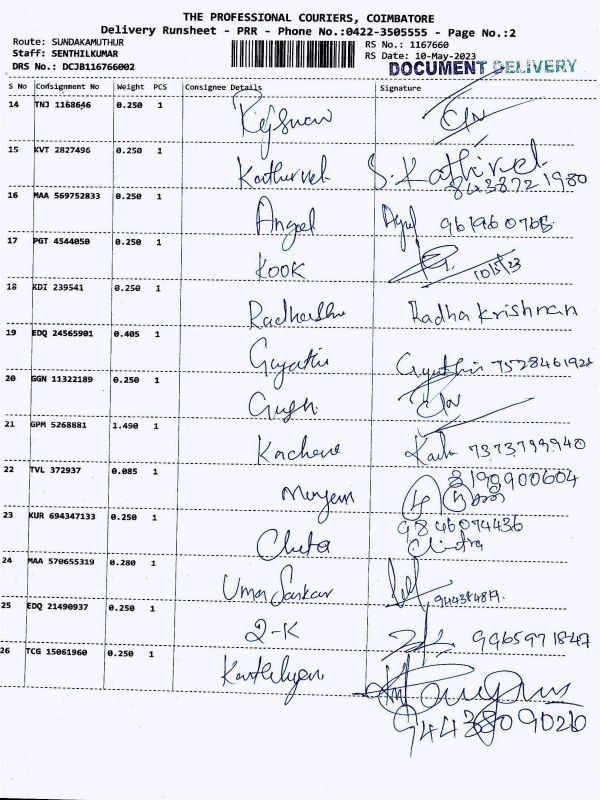 THE PROFESSIONAL COURIERS, COIMBATORE
Delivery Runsheet - PRR - Phone No.:0422-3505555 - Page No.:2
Route: SUNDAKAMUTHUR
Staff: SENTHILKUMAR
DRS No.: DCJB116766002
RS No.: 1167660
RS Date: 10-May-2023
DOCUMENT DELIVERY
S No Consignment No Weight PCS Consignee Details Signature
14 TNJ 1168646 0.250 1
15 KVT 2827496 0.250 1 Kathirvel S. Kathirvel
8438721980
16 MAA 569752833 0.250 1 Angel 961960765
17 PGT 4544050 0.250 1 KOOK 10/5/23
18 KDI 239541 0.250 1 Radha Krishnan
19 EDQ 24565901 0.405 1 Gayathri Gayathri
20 GGN 11322189 0.250 1
21 GPM 5268881 1.490 1
22 TVL 372937 0.085 1 8190900604
23 KUR 694347133 0.250 1 9846074436
Chitra
24 MAA 570655319 0.280 1 Uma Sankar
25 EDQ 21490937 0.250 1 9965971847
26 TCG 15061960 0.250 1
9443809020